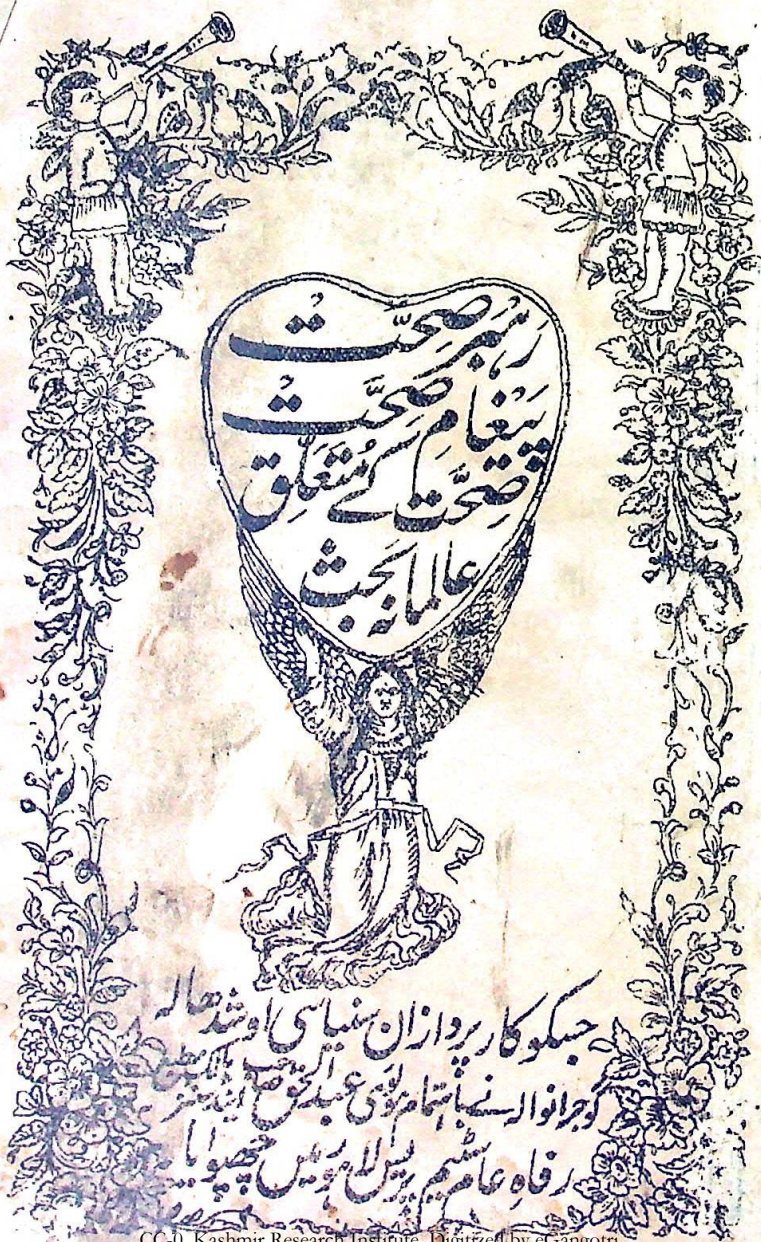 رَہبرِ صِحَّت
پیغامِ صحَّت
صِحَّت کے مُتعلّق
عالمانہ بحث
جسکو کارپردازان سنیاسی اوشدھالہ
گوجرانوالہ نے باہتمام مولوی عبدالحق صاحب مالک مطبع
رفاہِ عام سٹیم پریس لاہور میں چھپوایا
CC-0. Kashmir Research Institute. Digitized by eGangotri